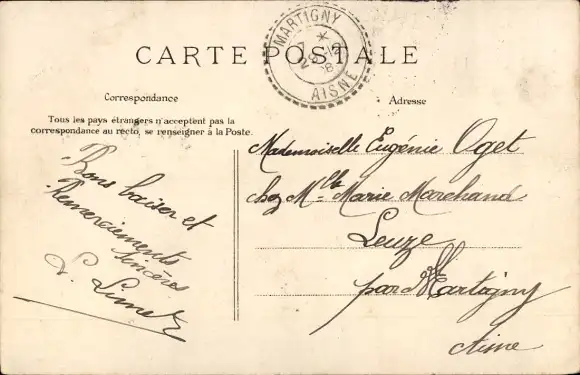 CARTE POSTALE
MARTIGNY
AISNE
Correspondance
Adresse
Tous les pays étrangers n'acceptent pas la
correspondance au recto, se renseigner à la Poste.
Bons baiser et
Remerciements
sincères
Mademoiselle Eugénie Oget
chez Mlle Marie Marchand
Leuze
par Martigny
Aisne